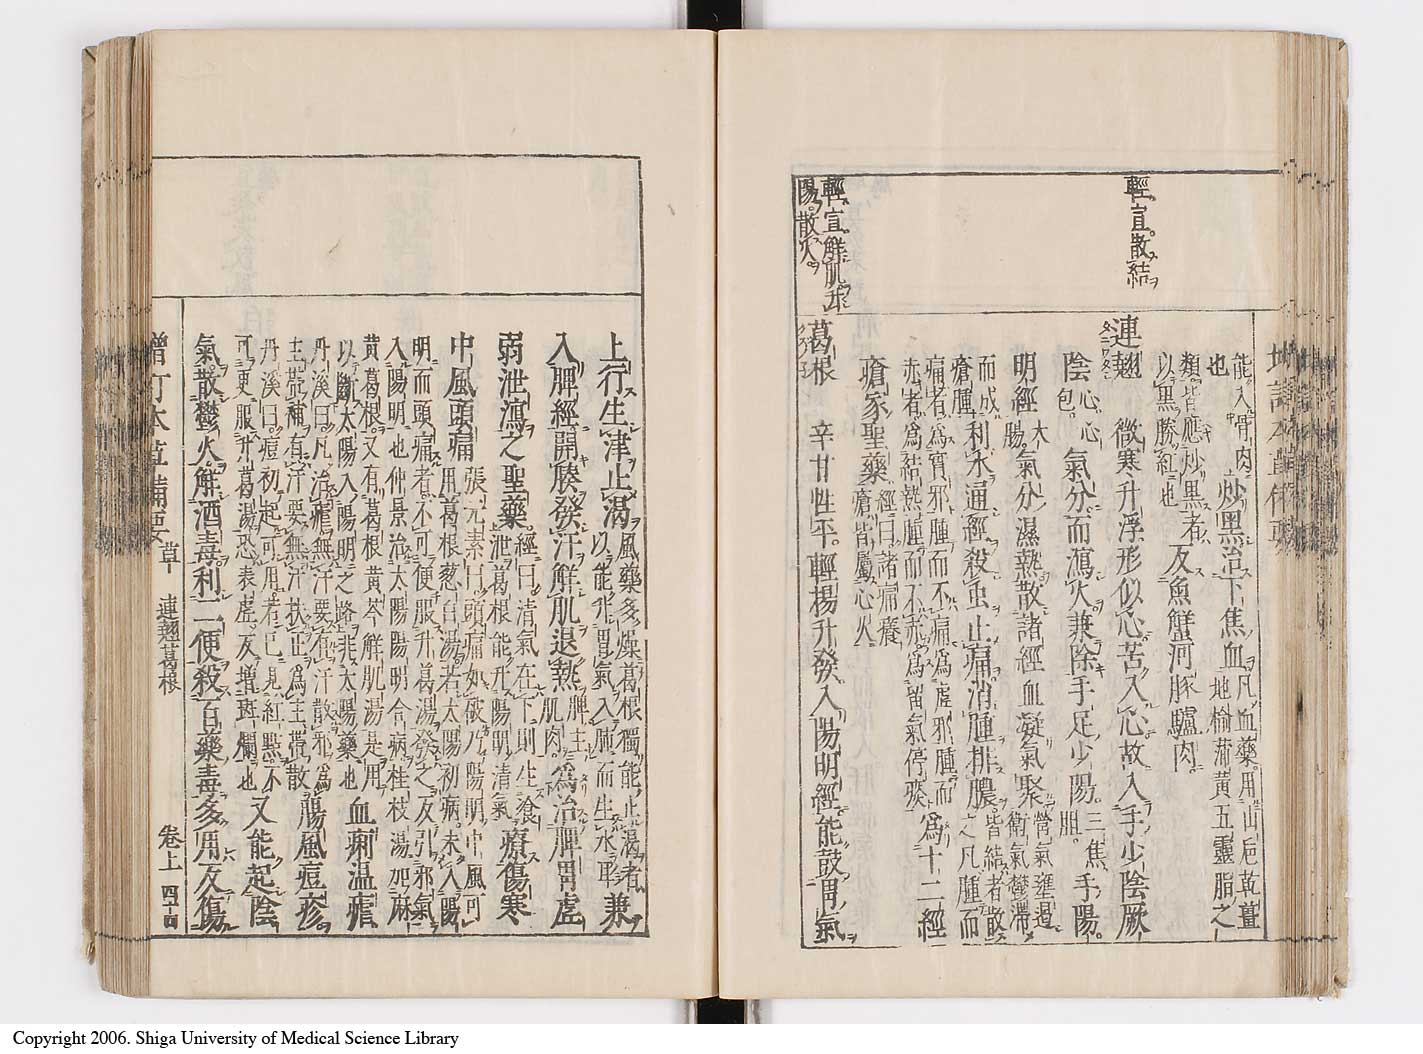 輕宣散結
輕宣解肌升
陽散火
能入骨肉 炒黑治下焦血 凡血藥用山卮乾薑
也 地榆蒲黃五靈脂之
類皆應炒黑者
以黑勝紅也 反魚蟹河豚驢肉
連翹 微寒升浮形似心苦入心故入手少陰厥
陰 心心
包 氣分而瀉火兼除手足少陽 三焦
膽 手陽
明經 大
腸 氣分濕熱散諸經血凝氣聚 營氣壅遏
衛氣鬱滯
而成
瘡腫 利水通經殺虫止痛消腫排膿 皆結者散
之凡腫而
痛者為實邪腫而不痛為虛邪腫而
赤者為結熱腫而不赤為留氣停痰 為十二經
瘡家聖藥 經曰諸痛癢
瘡皆屬心火
葛根 辛甘性平輕揚升發入陽明經能鼓胃氣
上行生津止渴 風藥多燥葛根獨能止渴者
以能升胃氣入肺而生水耳 兼
入脾經開腠發汗解肌退熱 脾主
肌肉 為治脾胃虛
弱泄瀉之聖藥 經曰清氣在下則生飧
泄葛根能升陽明清氣 療傷寒
中風頭痛 張元素曰頭痛如破乃陽明中風可
用葛根葱白湯若太陽初病未入陽
明而頭痛者不可便服升葛湯發之反引邪氣
入陽明也仲景治太陽陽明合病桂枝湯加麻
黃葛根又有葛根黃芩解肌湯是用
以斷太陽入陽明之路非太陽藥也 血痢溫瘧
丹溪曰凡治瘧無汗要有汗散邪為
主帶補有汗要無汗扶正為主帶散 腸風痘疹
丹溪曰痘初起可用若已見紅點不
可更服升葛湯恐表虛反增斑爛也 又能起陰
氣散鬱火解酒毒利二便殺百藥毒多用反傷
增訂本草備要 草 連翹葛根 卷上 四十四